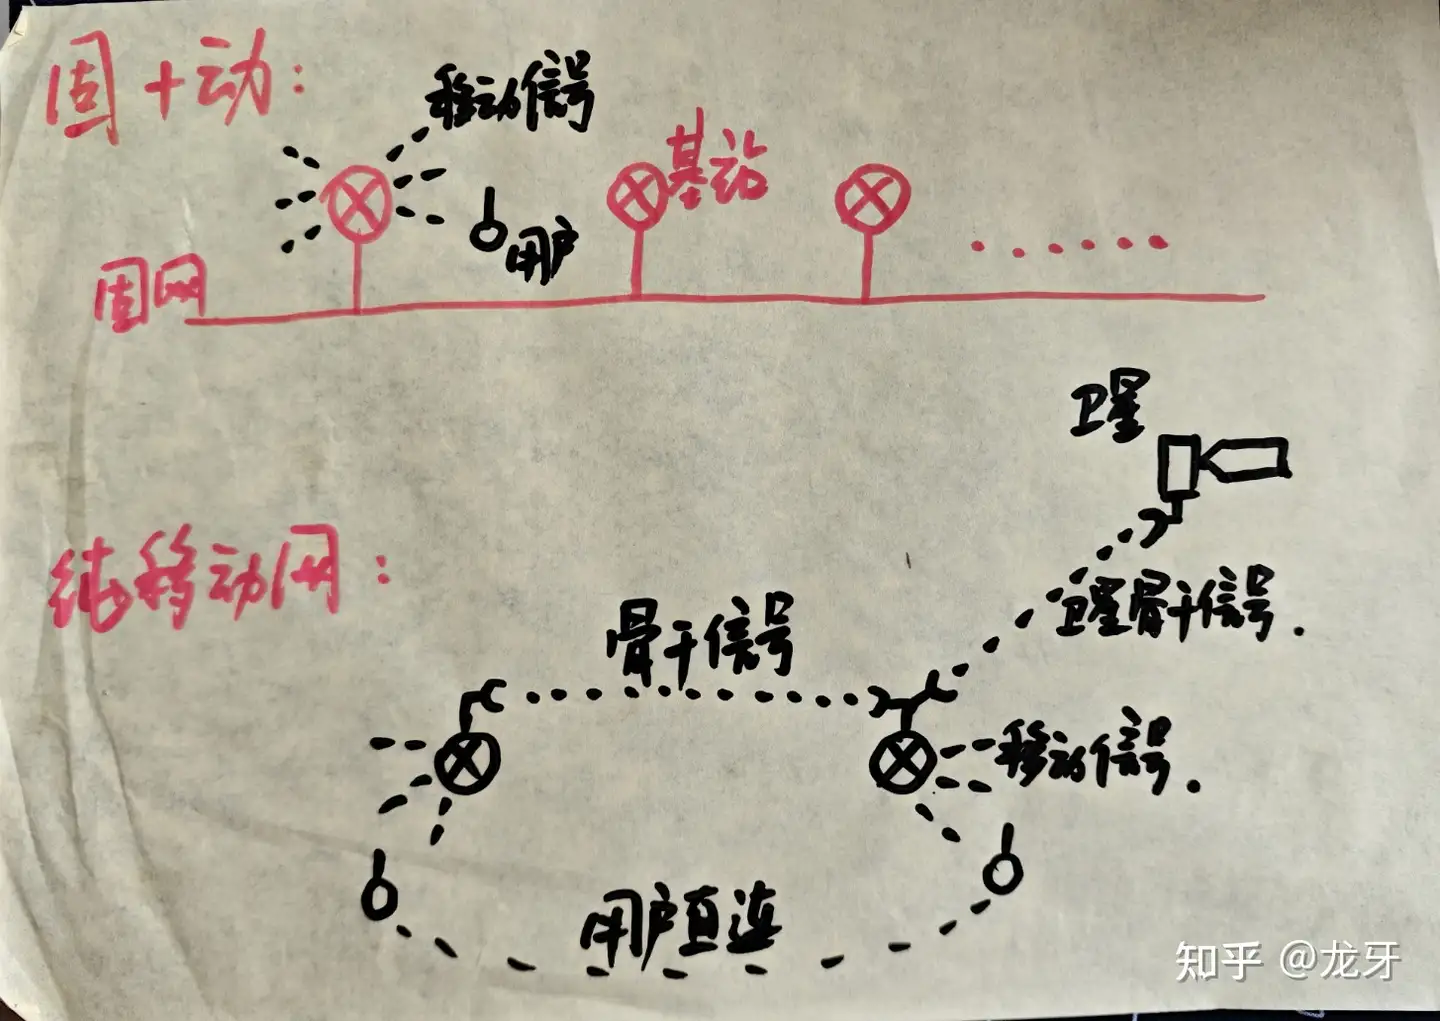 固+动：
移动信号
基站
用户
固网
卫星
纯移动网：
骨干信号
卫星骨干信号.
移动信号.
用户直连
知乎 @龙牙